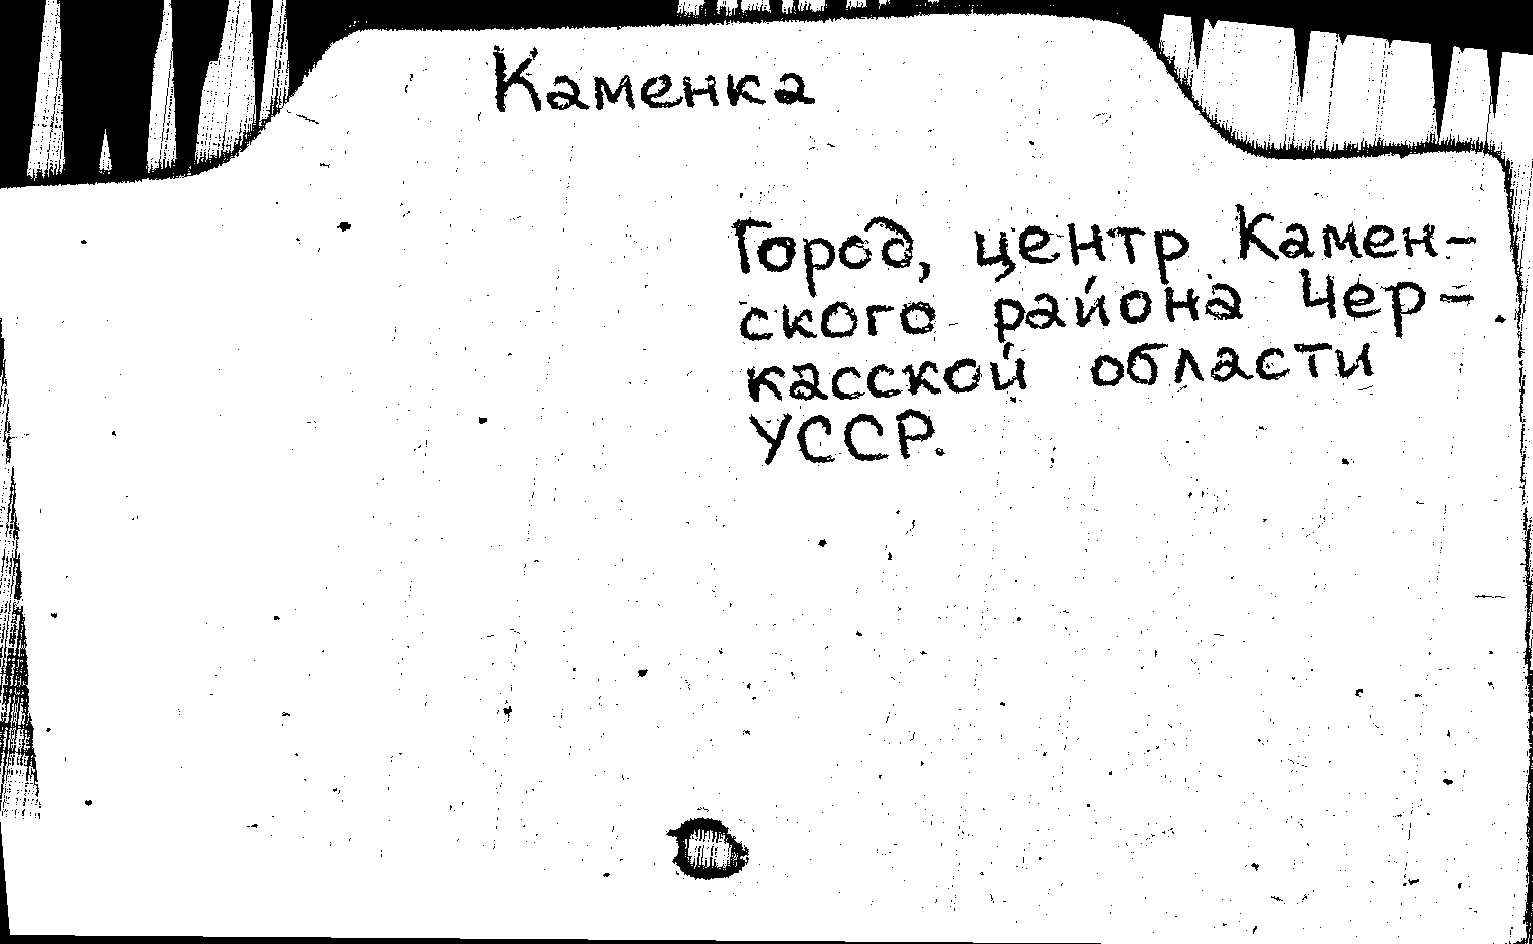 Каменка
Город, центр Камен-
ского района Чер-
касской области
УССР.